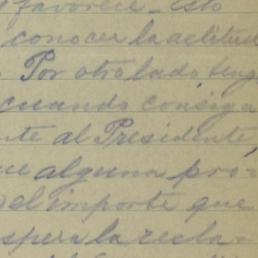 favorece. Esto
conocer la actitud
. Por otro lado, teng
cuando consiga
nte al Presidente,
ue alguna pró-
el importe que
spera la recla-